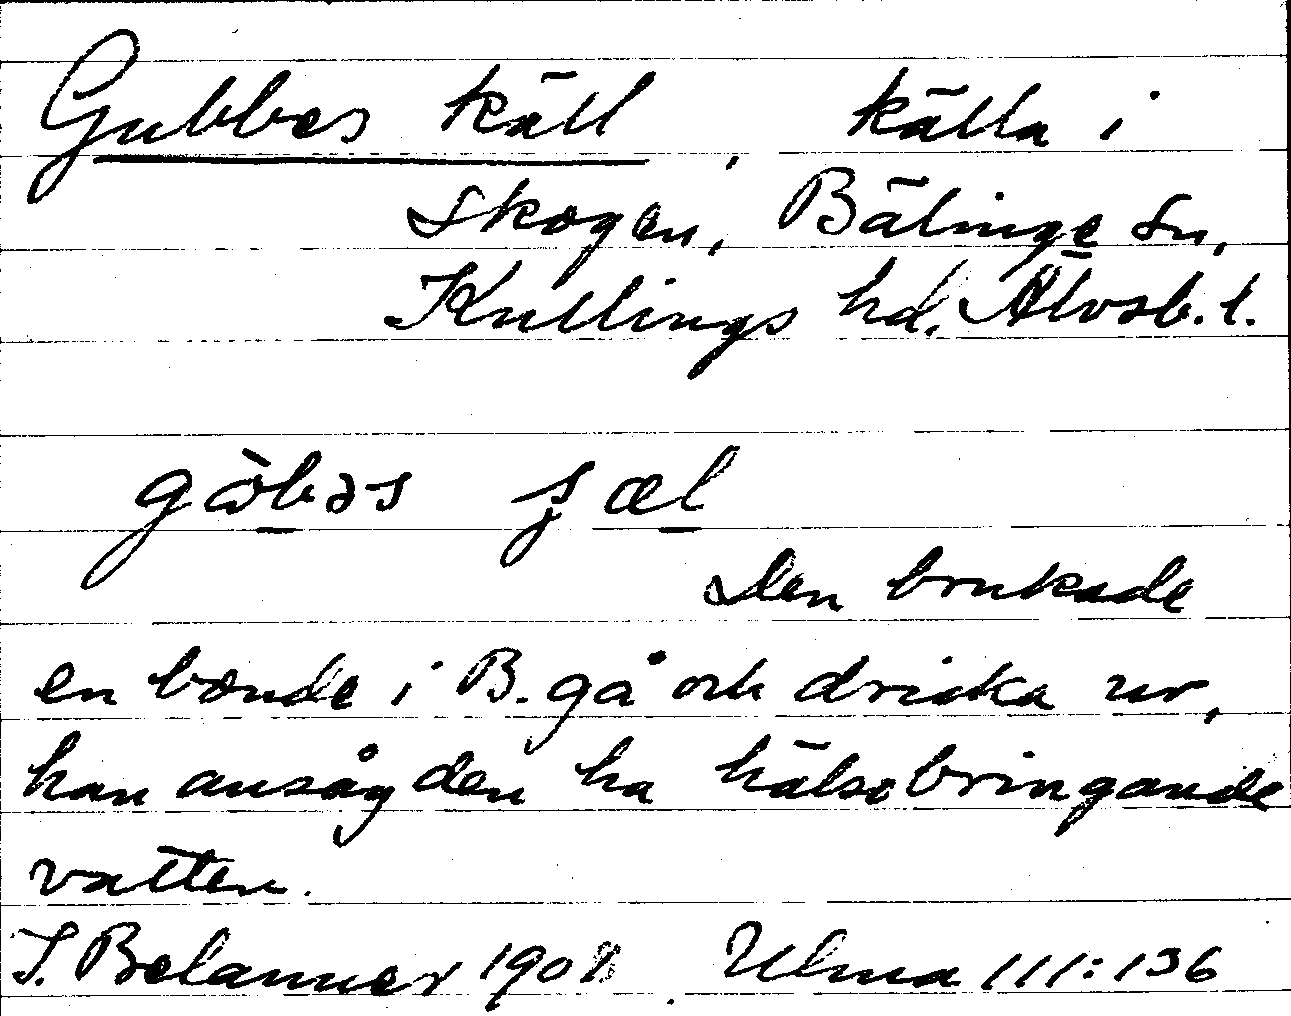 Gubbes käll, källa i
Skogen, Bälinge sn,
Kullings hd. Älvsb. l.
Den brukade
en bonde i B. gå och dricka ur,
han ansåg den ha hälsobringande
vatten.
Ulma 111:136